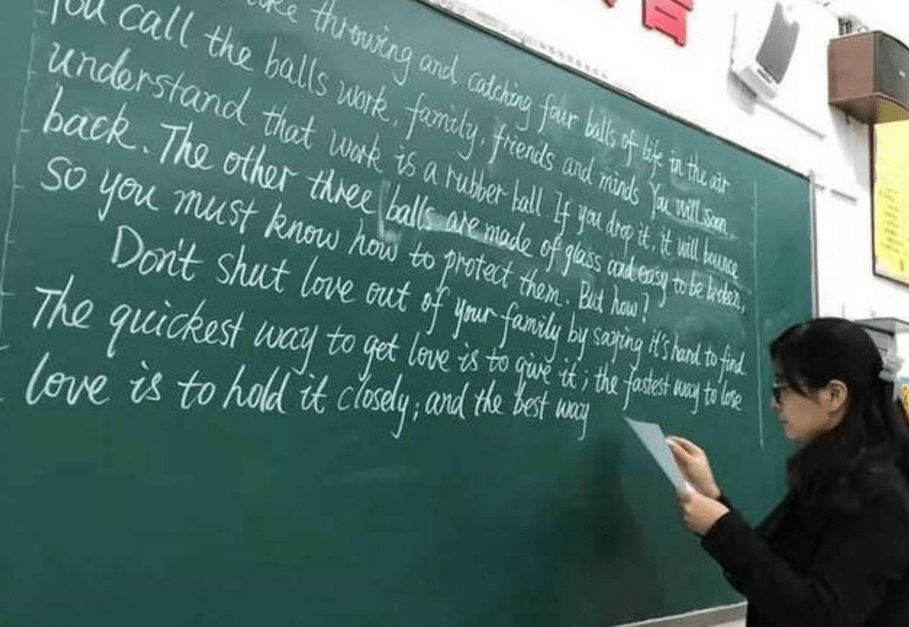 throwing and catching four balls of life in the air
You call the balls work, family, friends and minds You will soon
understand that work is a rubber ball. If you drop it, it will bounce
back. The other three balls are made of glass and easy to be broken,
so you must know how to protect them. But how?
Don't shut love out of your family by saying it's hard to find.
The quickest way to get love is to give it; the fastest way to lose
love is to hold it closely; and the best way